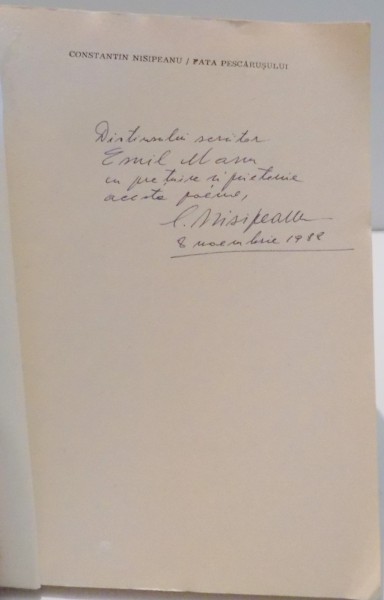 CONSTANTIN NISIPEANU / FATA PESCĂRUȘULUI
Distinsului scriitor
Emil Manu
cu prețuire și prietenie
aceste poeme,
C. Nisipeanu
8 noembrie 1982